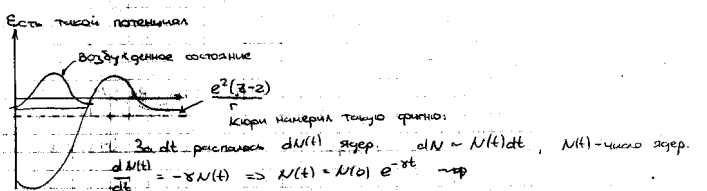 Есть такой потенциал
возбужденное состояние
e²(z-2)
r
Кюри намерил такую фигню:
За dt распалось dN(t) ядер. dN ~ N(t)dt, N(t)-число ядер.
dN(t)/dt = -γN(t) => N(t) = N(0) e^{-γt}